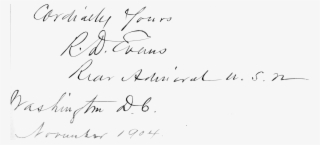 Cordially Yours
R. D. Evans
Rear Admiral U. S. N
Washington D. C.
November 1904